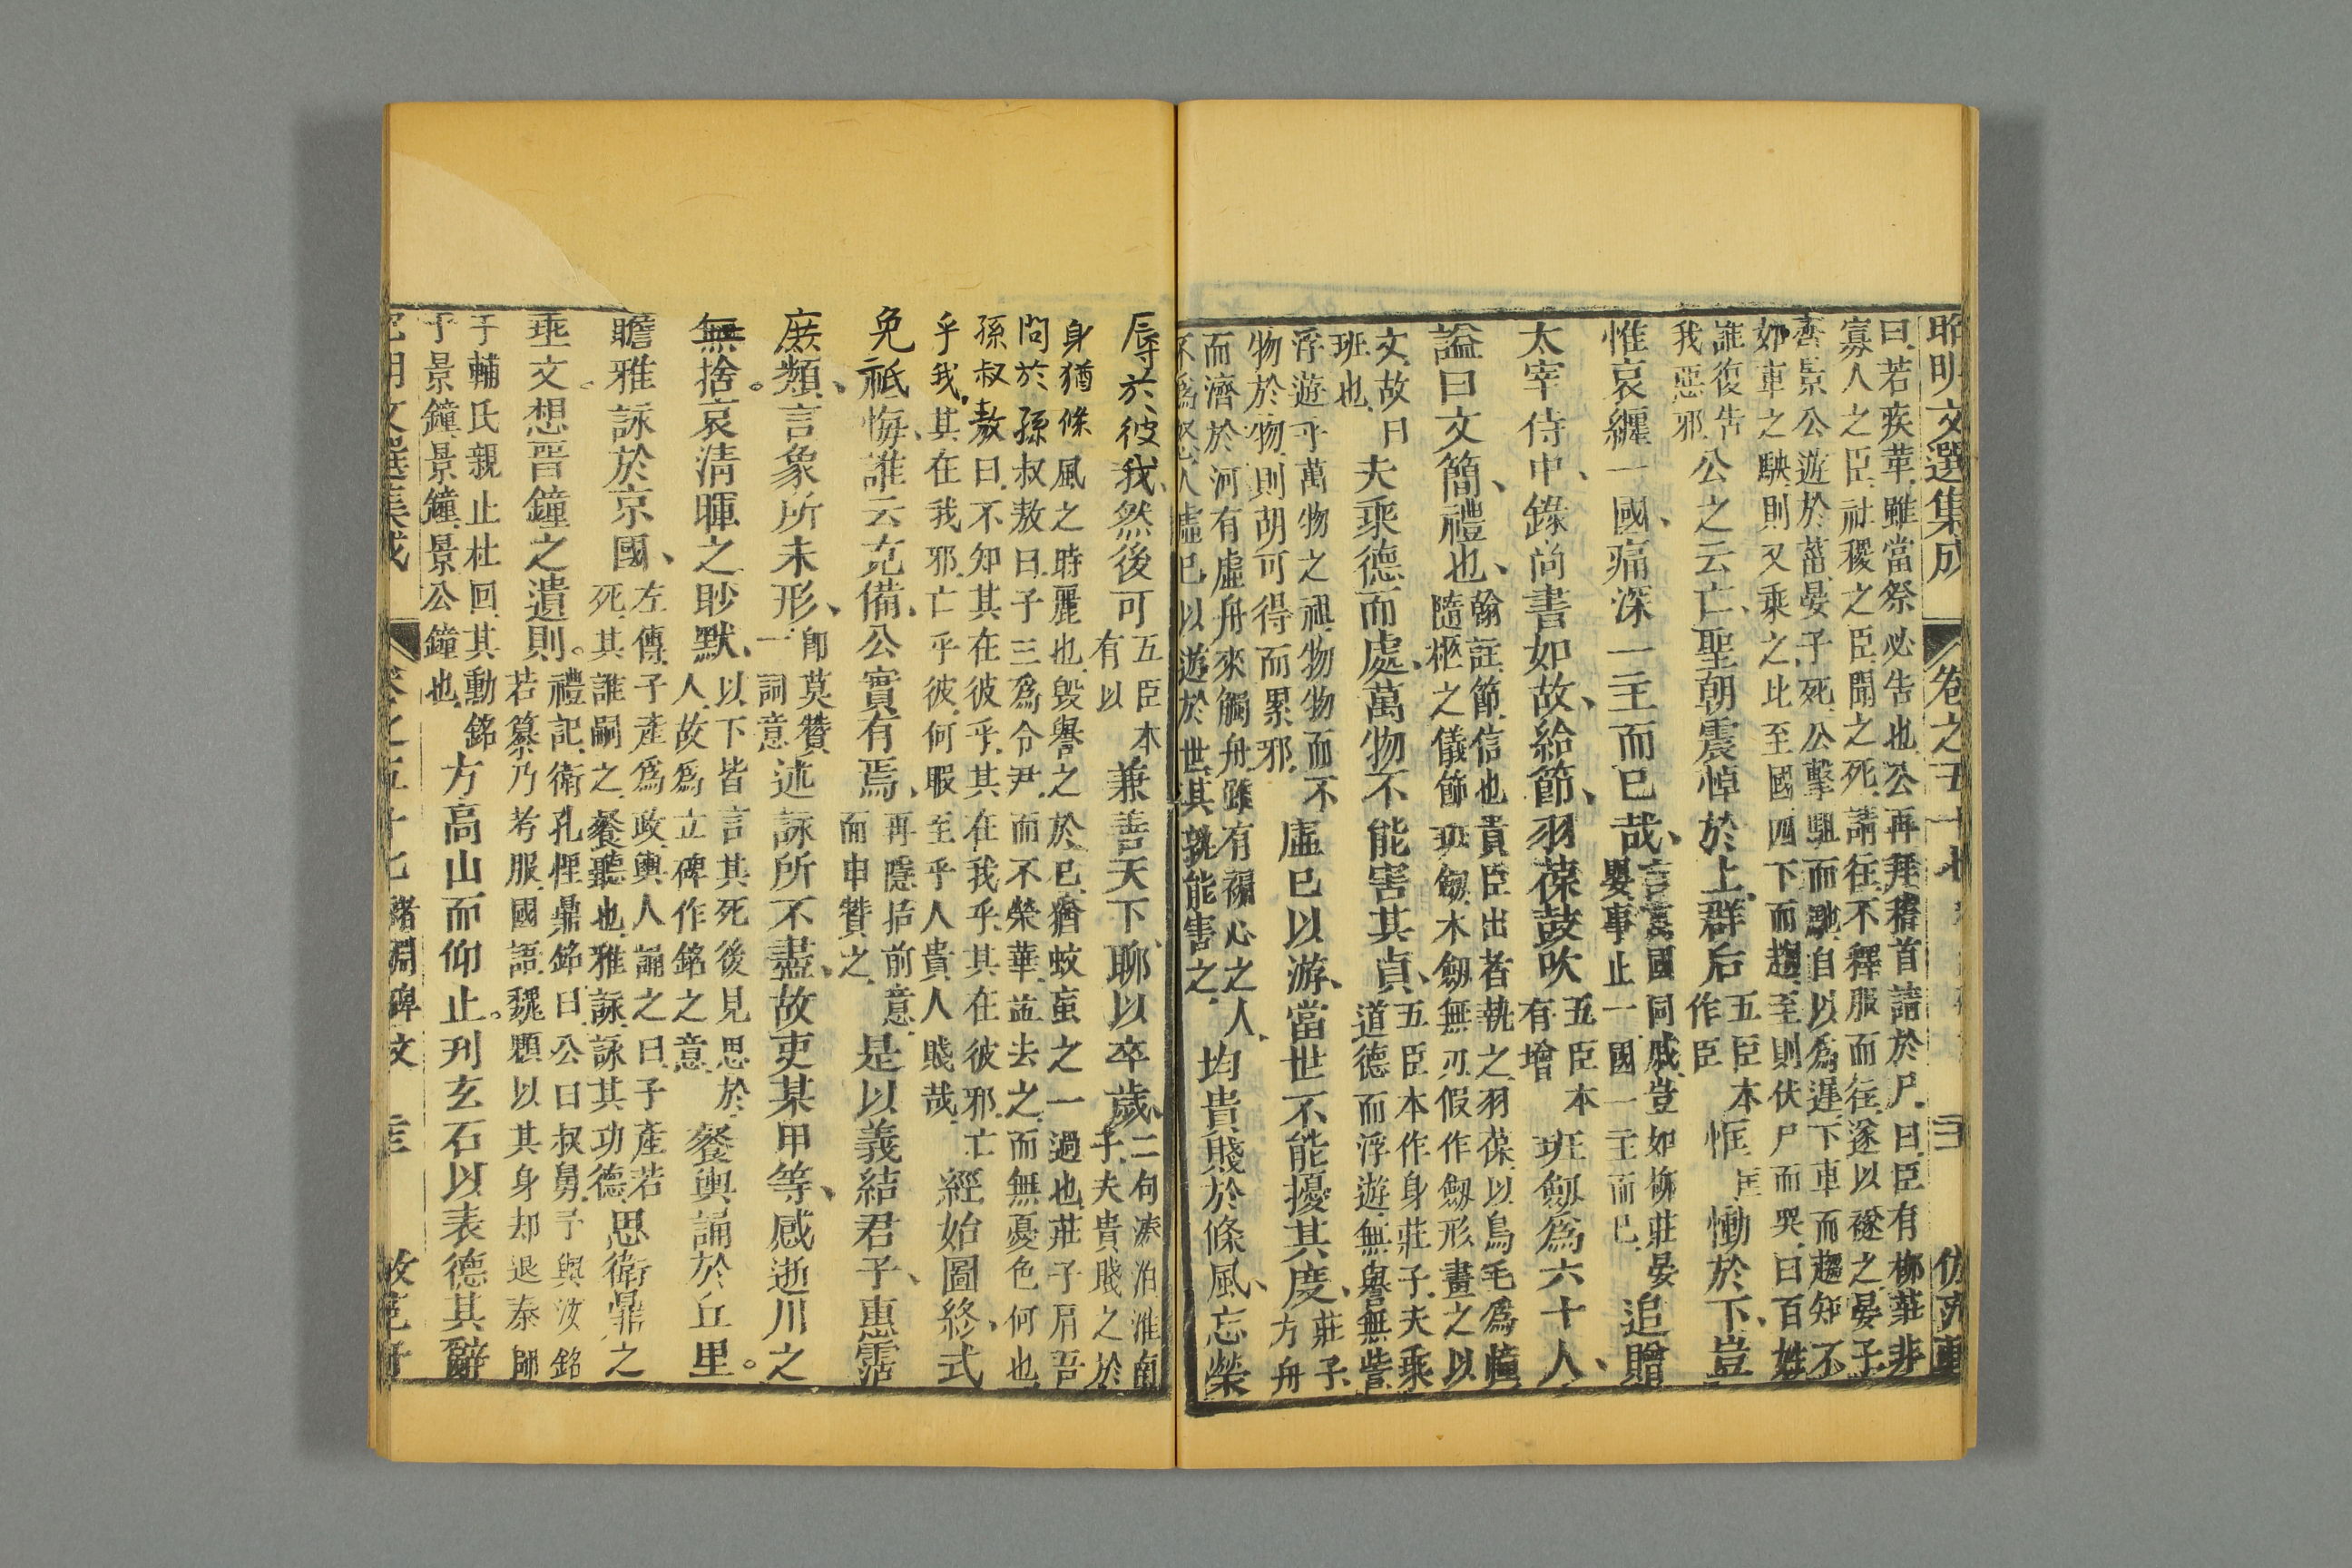 昭明文選集成 卷之五十七
曰若疾革雖當祭必告也公再拜稽首請於尸曰臣有柳莊非
寡人之臣社稷之臣聞之死請往不釋服而往遂以襚之晏子
齊景公遊於菑晏子死公擊驅而馳自以爲遲下車而趨知不
如車之駃則又乘之比至國四下而趨至則伏尸而哭曰百姓
誰復告
我惡邪
公之云亡聖朝震悼於上群后
五臣本
作臣
恇
恇
慟於下豈
惟哀纏一國痛深一主而已哉
言憂國同戚豈如柳莊晏
嬰事止一國一主而已
追贈
太宰侍中錄尚書如故給節羽葆鼓吹
五臣本
有增
班劒爲六十人
諡曰文簡禮也
翰註節信也貴臣出者執之羽葆以鳥毛爲幢
隨柩之儀飾班劒木劒無刃假作劒形畫之以
文故曰
班也
夫乘德而處萬物不能害其貞
五臣本作身莊子夫乘
道德而浮遊無譽無訾
浮遊乎萬物之祖物物而不
物於物則胡可得而累邪
虛巳以游當世不能擾其度
莊子
方舟
而濟於河有虛舟來觸舟雖有褊心之人
不爲怒人虛巳以遊於世其孰能害之
均貴賤於條風忘榮
辱於彼我然後可
五臣本
有以
兼善天下聊以卒歲
二句湊泊淮南
子夫貴賤之於
身猶條風之時麗也毀譽之於巳猶蚊䖟之一過也莊子肩吾
問於孫叔敖曰子三爲令尹而不榮華三去之而無憂色何也
孫叔敖曰不知其在彼乎其在我乎其在彼邪亡
乎我其在我邪亡乎彼何暇至乎人貴人賤哉
經始圖終式
免祗悔誰云克備公實有焉
再隱括前意
而申贊之
是以義結君子惠霑
庶類言象所未形
即莫贊
一詞意
述詠所不盡故吏某甲等感逝川之
無捨哀清暉之眇默
以下皆言其死後見思於
人故爲立碑作銘之意
餐輿誦於丘里
瞻雅詠於京國
左傳子產爲政輿人誦之曰子產若
死其誰嗣之餐聽也雅詠詠其功德
思衛鼎之
垂文想晉鐘之遺則
禮記衛孔悝鼎銘曰公曰叔舅予與汝銘
若纂乃考服國語魏顆以其身却退秦師
于輔氏親止杜回其動銘
于景鐘景鐘景公鐘也
方高山而仰止刊玄石以表德其辭
褚淵碑文